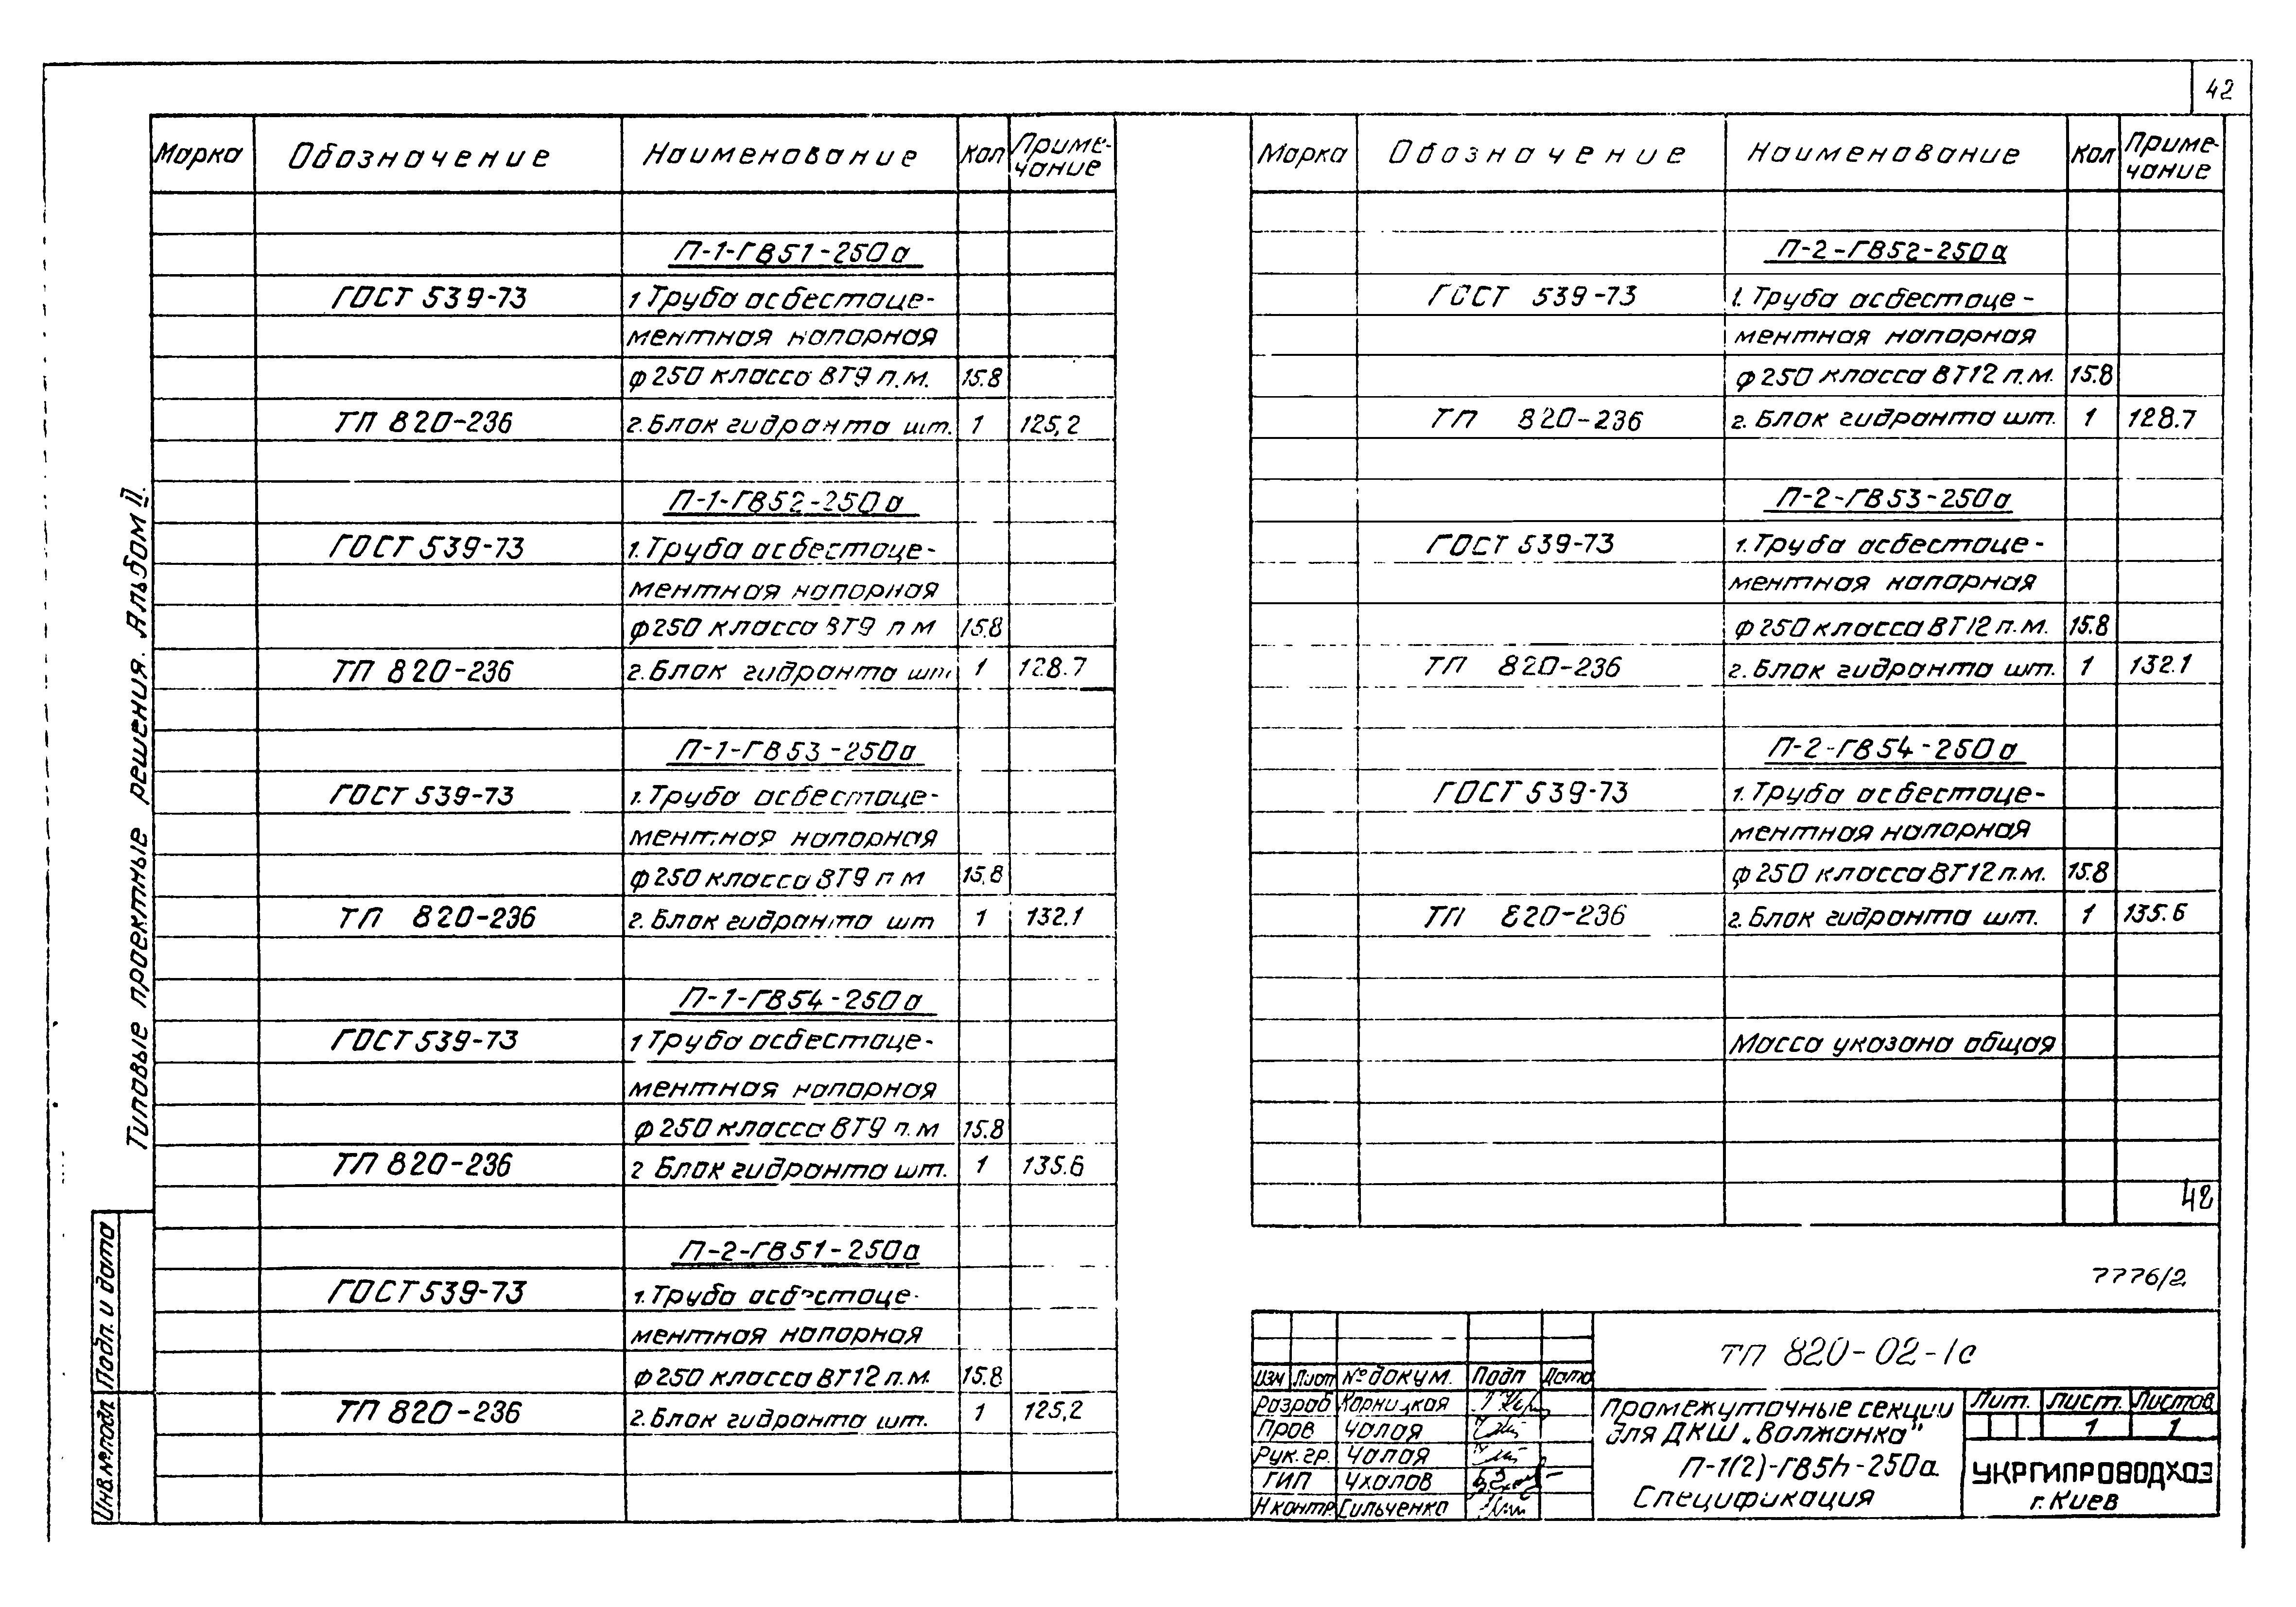 42
Марка Обозначение Наименование Кол Приме-
чание
П-1-ГВ51-250а
ГОСТ 539-73 1 Труба асбестоце-
ментная напорная
ф250 класса ВТ9 п.м. 15.8
ТП 820-236 2. Блок гидранта шт. 1 125,2
П-1-ГВ52-250а
ГОСТ 539-73 1. Труба асбестоце-
ментная напорная
ф250 класса ВТ9 п м 15.8
ТП 820-236 2. Блок гидранта шт. 1 128.7
П-1-ГВ53-250а
ГОСТ 539-73 1. Труба асбестоце-
ментная напорная
ф250 класса ВТ9 п м 15,8
ТП 820-236 2. Блок гидранта шт 1 132.1
П-1-ГВ54-250а
ГОСТ 539-73 1 Труба асбестоце-
ментная напорная
ф250 класса ВТ9 п.м 15.8
ТП 820-236 2 Блок гидранта шт. 1 135.6
П-2-ГВ51-250а
ГОСТ 539-73 1. Труба асбестоце-
ментная напорная
ф250 класса ВТ12 п.м. 15.8
ТП 820-236 2. Блок гидранта шт. 1 125,2
Марка Обозначение Наименование Кол Приме-
чание
П-2-ГВ52-250а
ГОСТ 539-73 1. Труба асбестоце-
ментная напорная
ф250 класса ВТ12 п.м. 15.8
ТП 820-236 2. Блок гидранта шт. 1 128.7
П-2-ГВ53-250а
ГОСТ 539-73 1. Труба асбестоце-
ментная напорная
ф250 класса ВТ12 п.м. 15.8
ТП 820-236 2. Блок гидранта шт. 1 132.1
П-2-ГВ54-250а
ГОСТ 539-73 1. Труба асбестоце-
ментная напорная
ф250 класса ВТ12 п.м. 15.8
ТП 820-236 2. Блок гидранта шт. 1 135.6
Масса указана общая
42
7776/2
Типовые проектные решения. Альбом II.
Подп. и дата
Инв.№подл.
ТП 820-02-1с
Изм Лист №докум. Подп Дата
Разраб Корницкая
Пров Чалая
Рук.гр. Чалая
ГИП Чхалов
Н контр. Сильченко
Промежуточные секции
для ДКШ „Волжанка"
П-1(2)-ГВ5h-250а.
Спецификация
Лит. Лист. Листов
1 1
УКРГИПРОВОДХОЗ
г. Киев